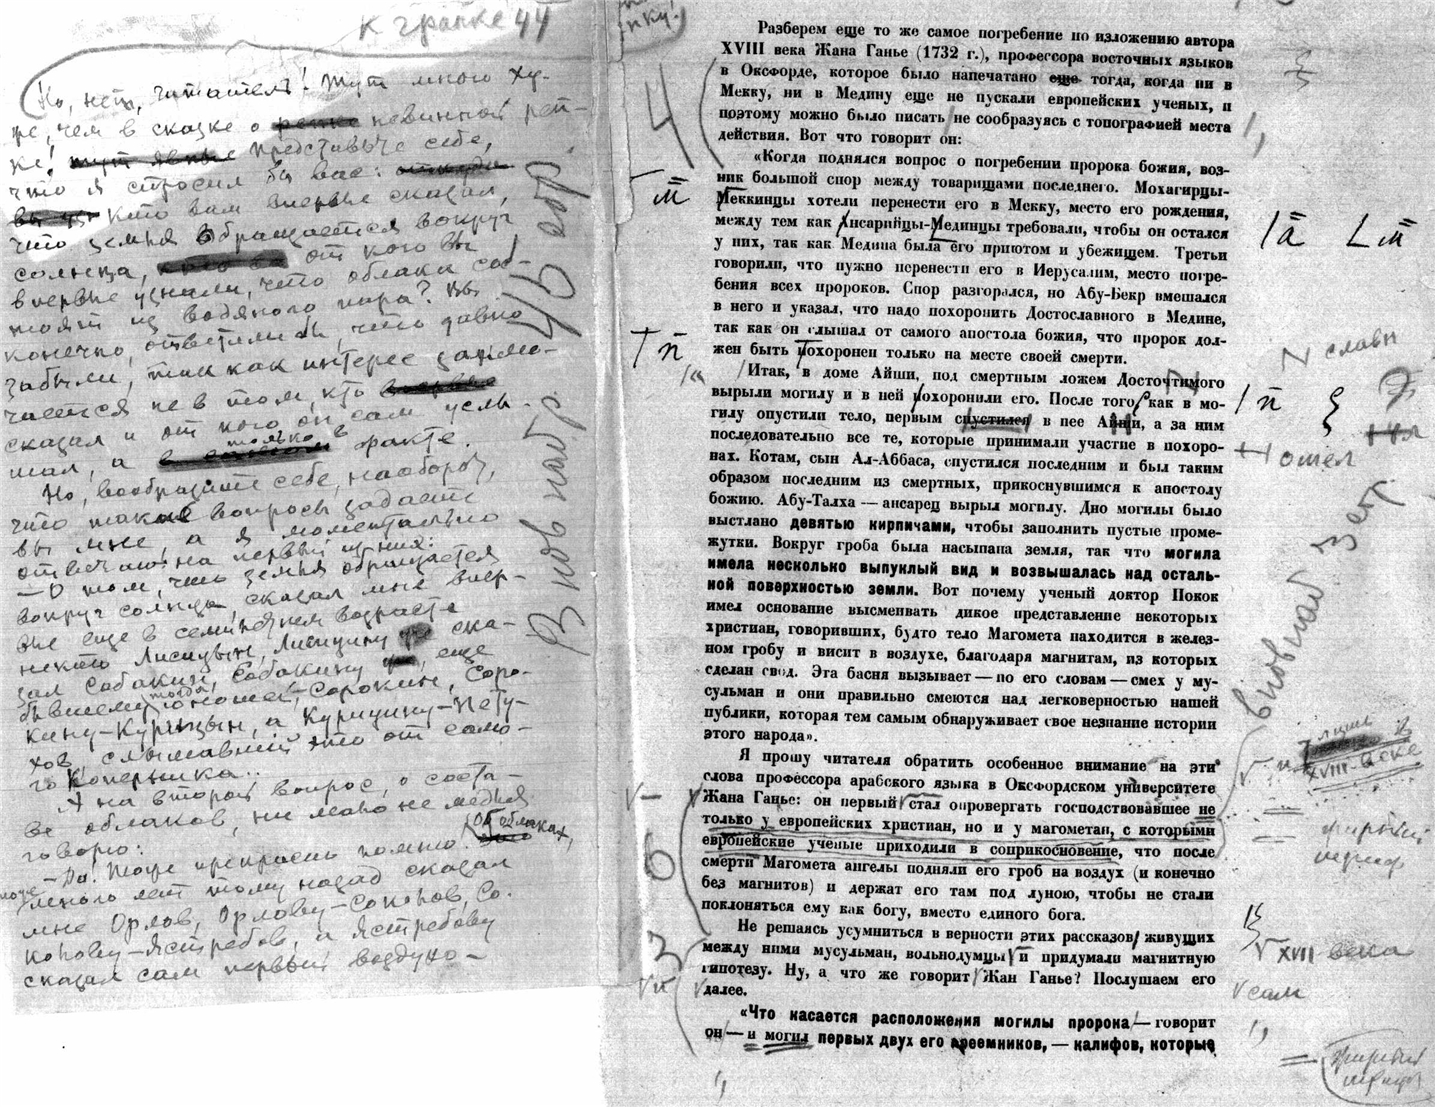 К гранке 44
Но, нет, читатель! Тут много ху-
же, чем в сказке о невинной реп-
ке! Представьте себе,
что я спросил бы вас:
кто вам впервые сказал,
что земля обращается вокруг
солнца, от кого вы
впервые узнали, что облака сос-
тоят из водяного пара? Вы
конечно, ответили бы, что давно
забыли, так как интерес заклю-
чается не в том, кто
сказал и от кого он сам услы-
шал, а только в факте.
Но, вообразите себе, наоборот,
что такие вопросы задаете
вы мне, а я моментально
отвечаю на первый из них:
— О том, что земля обращается
вокруг солнца, сказал мне впер-
вые еще в семилетнем возрасте
некто Лисицын, Лисицину ска-
зал Собакин, Собакину, еще
бывшему тогда юношей,—Сорокин, Соро-
кину—Курицын, а Курицину—Пету-
хов, слышавший это от само-
го Коперника..
А на второй вопрос, о соста-
ве облаков, ни мало не медля
говорю:
— Да. Тоже прекрасно помню. Об облаках,
много лет тому назад сказал
мне Орлов, Орлову—Соколов, Со-
колову—Ястребов, а Ястребову
сказал сам первый воздухо-
В нов набр 45 стр.
Разберем еще то же самое погребение по изложению автора
XVIII века Жана Ганье (1732 г.), профессора восточных языков
в Оксфорде, которое было напечатано еще тогда, когда ни в
Мекку, ни в Медину еще не пускали европейских ученых, и
поэтому можно было писать не сообразуясь с топографией места
действия. Вот что говорит он:
«Когда поднялся вопрос о погребении пророка божия, воз-
ник большой спор между товарищами последнего. Мохагирцы-
Меккинцы хотели перенести его в Мекку, место его рождения,
между тем как Ансарийцы-Мединцы требовали, чтобы он остался
у них, так как Медина была его приютом и убежищем. Третьи
говорили, что нужно перенести его в Иерусалим, место погре-
бения всех пророков. Спор разгорался, но Абу-Бекр вмешался
в него и указал, что надо похоронить Достославного в Медине,
так как он слышал от самого апостола божия, что пророк дол-
жен быть похоронен только на месте своей смерти.
Итак, в доме Айши, под смертным ложем Досточтимого
вырыли могилу и в ней похоронили его. После того как в мо-
гилу опустили тело, первым спустился в нее Айши, а за ним
последовательно все те, которые принимали участие в похоро-
нах. Котам, сын Ал-Аббаса, спустился последним и был таким
образом последним из смертных, прикоснувшимся к апостолу
божию. Абу-Талха — ансарец вырыл могилу. Дно могилы было
выстлано девятью кирпичами, чтобы заполнить пустые проме-
жутки. Вокруг гроба была насыпана земля, так что могила
имела несколько выпуклый вид и возвышалась над осталь-
ной поверхностью земли. Вот почему ученый доктор Покок
имел основание высмеивать дикое представление некоторых
христиан, говоривших, будто тело Магомета находится в желез-
ном гробу и висит в воздухе, благодаря магнитам, из которых
сделан свод. Эта басня вызывает — по его словам — смех у му-
сульман и они правильно смеются над легковерностью нашей
публики, которая тем самым обнаруживает свое незнание истории
этого народа».
Я прошу читателя обратить особенное внимание на эти
слова профессора арабского языка в Оксфордском университете
Жана Ганье: он первый стал опровергать господствовавшее не
только у европейских христиан, но и у магометан, с которыми
европейские ученые приходили в соприкосновение, что после
смерти Магомета ангелы подняли его гроб на воздух (и конечно
без магнитов) и держат его там под луною, чтобы не стали
поклоняться ему как богу, вместо единого бога.
Не решаясь усумниться в верности этих рассказов живущих
между ними мусульман, вольнодумцы и придумали магнитную
гипотезу. Ну, а что же говорит Жан Ганье? Послушаем его
далее.
«Что касается расположения могилы пророка — говорит
он — и могил первых двух его преемников, — калифов, которые
4
6
3
м
п
а м
славн
п
ошел
XVIII-веке
XVII века
сам